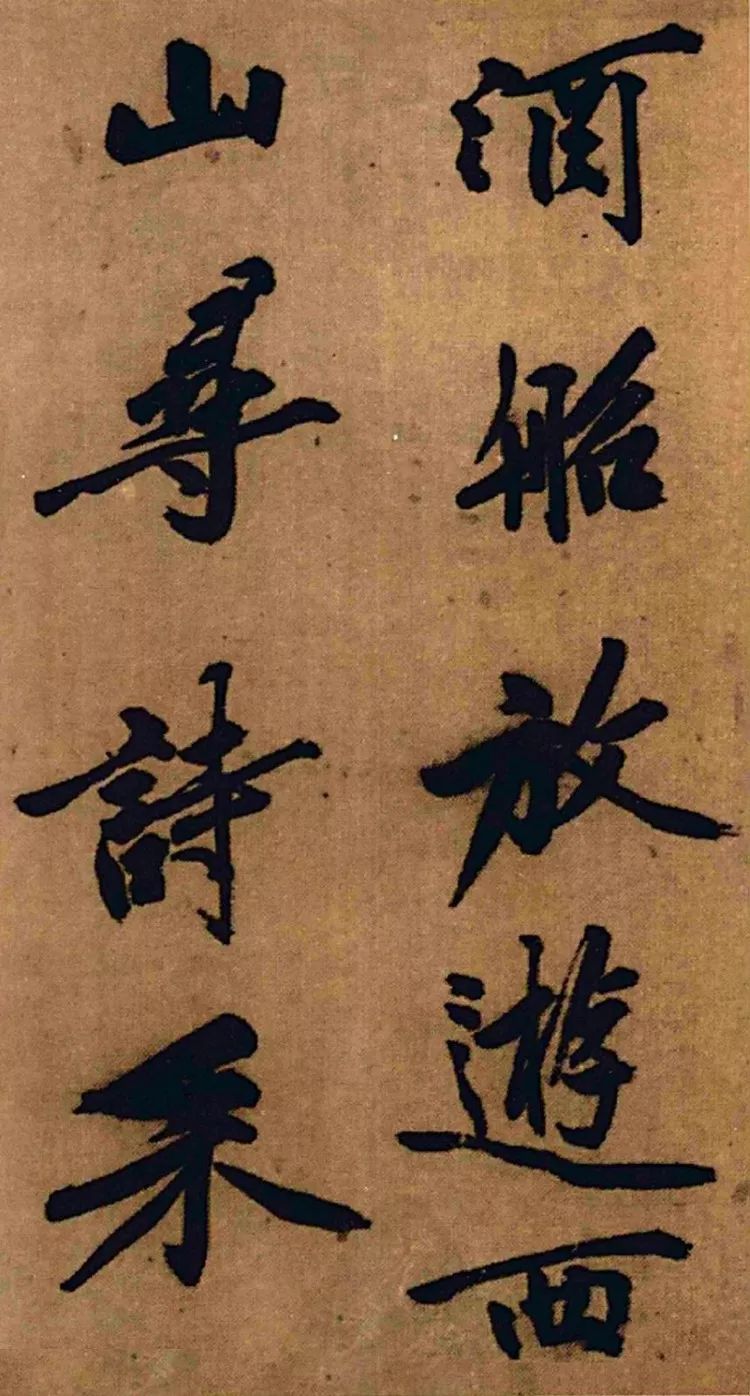 酒船放遊西
山尋詩采